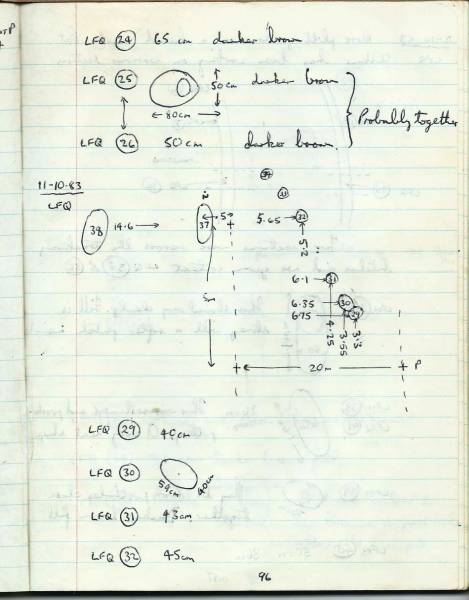 LFQ 24 65 cm darker brown
LFQ 25 50cm darker brown
80cm
Probably together
LFQ 26 50cm darker brown.
11-10-83
LFQ
34
33
38 14.6 37 .5 5.65 32
5.2
6.1 31
5m
6.35 30
6.75 29
4.25 3.55 3.3
20m P
LFQ 29 49cm
LFQ 30 54cm 40cm
LFQ 31 43cm
LFQ 32 45cm
96